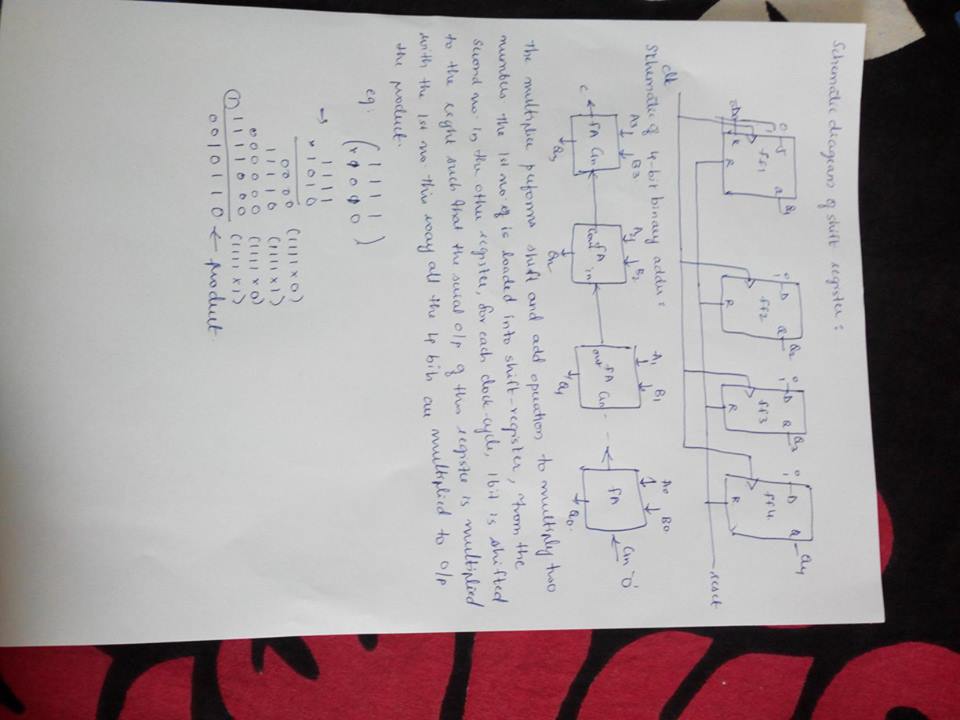 Schematic diagram of shift register :
S FF1 Q Q1 R
0 1 D FF2 Q Q2 R
0 1 D FF3 Q Q3 R
0 1 D FF4 Q Q4 R
clk
reset
Schematic of 4-bit binary adder :
A3 B3 A2 B2 A1 B1 A0 B0
C FA Cin Cout FA in out FA Cin FA Cin '0'
Q3 Q2 Q1 Q0
The multiplier performs shift and add operation to multiply two
numbers the 1st no. of is loaded into shift-register, from the
second no. in the other register, for each clock-cycle, 1 bit is shifted
to the right such that the serial o/p of this register is multiplied
with the 1st no this way all the 4 bits are multiplied to o/p
the product.
eg:
1 1 1 1
→ 1 1 1 1
x 1 0 1 0
0 0 0 0 (1111 x 0)
1 1 1 1 0 (1111 x 1)
0 0 0 0 0 0 (1111 x 0)
1 1 1 1 0 0 0 (1111 x 1)
0 0 1 0 1 1 0 ← product.